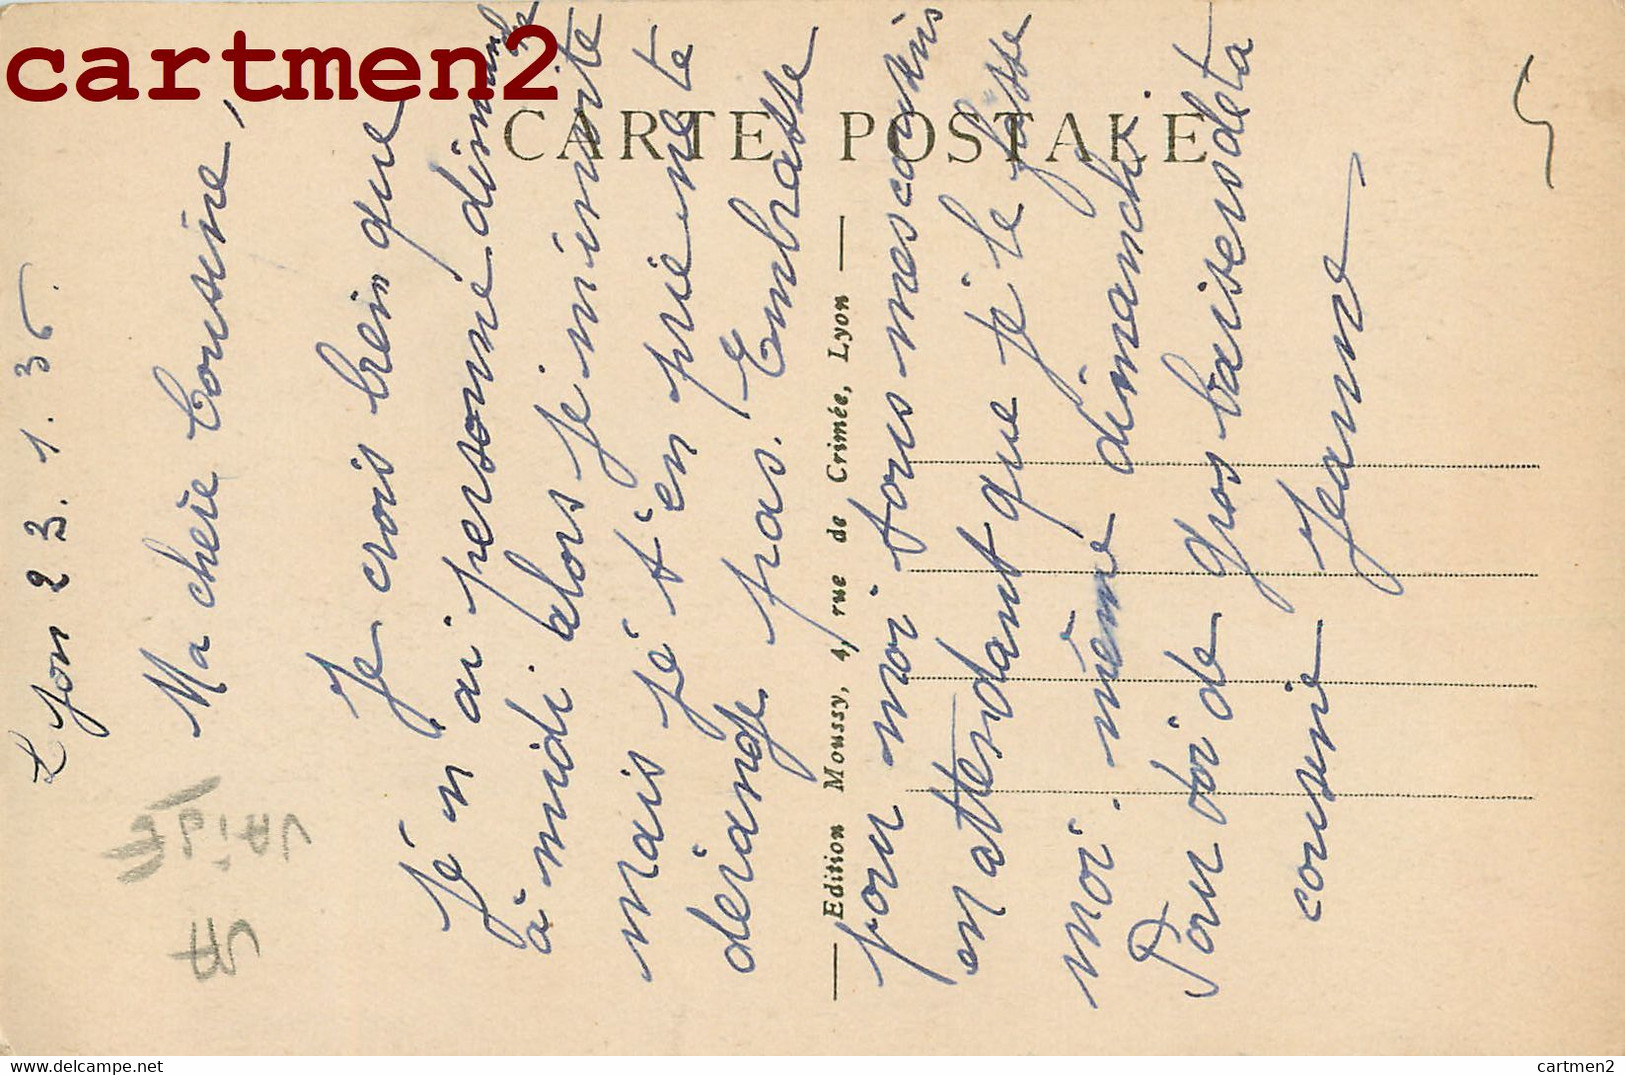 cartmen2
CARTE POSTALE
Lyon 23.1.36.
Ma chère Cousine,
Je crois bein que
Je n'ai personne dimanche
à midi alors je m'invite
mais je t'en prie ne te
derange pas. Embrasse
pour moi tous mes cousins
en attendant que je le fasse
moi-même dimanche.
Pour toi de gros baisers de ta
cousine Jeanne
Edition Moussy, 4, rue de Crimée, Lyon
cartmen2